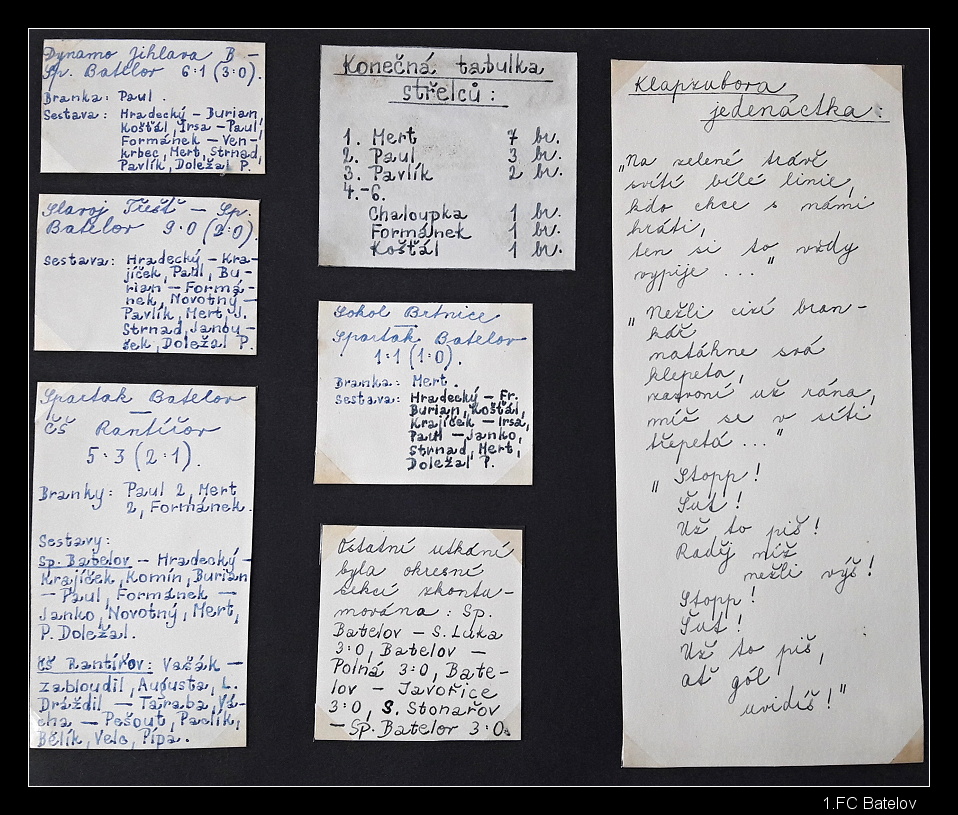 Dynamo Jihlava B –
Sp. Batelov 6:1 (3:0).
Branka: Paul.
Sestava: Hradecký – Burian,
Košťál, Irsa – Paul,
Formánek – Ven-
krbec, Mert, Strnad,
Pavlík, Doležal P.
Slavoj Třešť – Sp.
Batelov 9:0 (2:0).
Sestava: Hradecký – Kra-
jíček, Paul, Bu-
rian – Formá-
nek, Novotný –
Pavlík, Mert, J.
Strnad, Janou-
šek, Doležal P.
Spartak Batelov
–
ČŠ Rantířov
5:3 (2:1).
Branky: Paul 2, Mert
2, Formánek.
Sestavy:
Sp. Batelov – Hradecký –
Krajíček, Komín, Burian
– Paul, Formánek –
Janko, Novotný, Mert,
P. Doležal.
ČŠ Rantířov: Vašák –
Zabloudil, Augusta, L.
Dráždil – Taraba, Vá-
cha – Pešout, Pavlík,
Bělík, Velc, Pípa.
Konečná tabulka
střelců:
1. Mert 7 br.
2. Paul 3 br.
3. Pavlík 2 br.
4.-6.
Chaloupka 1 br.
Formánek 1 br.
Košťál 1 br.
Sokol Brtnice
–
Spartak Batelov
1:1 (1:0).
Branka: Mert.
Sestava: Hradecký – Fr.
Burian, Košťál,
Krajíček – Irsa,
Paul – Janko,
Strnad, Mert,
Doležal P.
Ostatní utkání
byla okresní
sekcí zkontu-
mována: Sp.
Batelov – S. Luka
3:0, Batelov –
Polná 3:0, Bate-
lov – Javořice
3:0, S. Stonařov
– Sp. Batelov 3:0.
Klapzubova
jedenáctka:
„Na zelené trávě
svítí bílé linie,
kdo chce s námi
hráti,
ten si to vždy
vypije ..."
„Nežli cizí bran-
kář
natáhne svá
klepeta,
zazvoní už rána,
míč se v síti
třepetá..."
„Stopp!
Šut!
Už to piš!
Raděj níž
nežli výš!
Stopp!
Šut!
Už to piš,
ať gól
uvidíš!"
1.FC Batelov